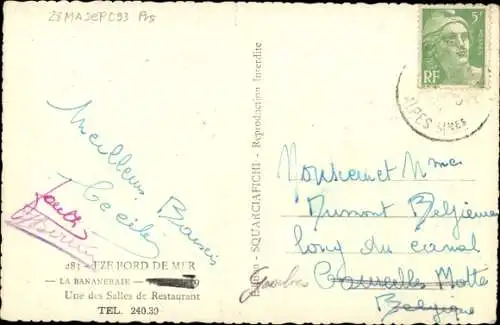 28MASEPC93 Prs
5f
RF
ALPES MMES
Meilleurs Baisers
Cécile
281 - EZE BORD DE MER
— LA BANANERAIE —
Une des Salles de Restaurant
TEL. 240.39
Edition - SQUARCIAFICHI - Reproduction Interdite
Monsieur et Mme
Dumont
long du canal
Courcelles Motte
Belgique